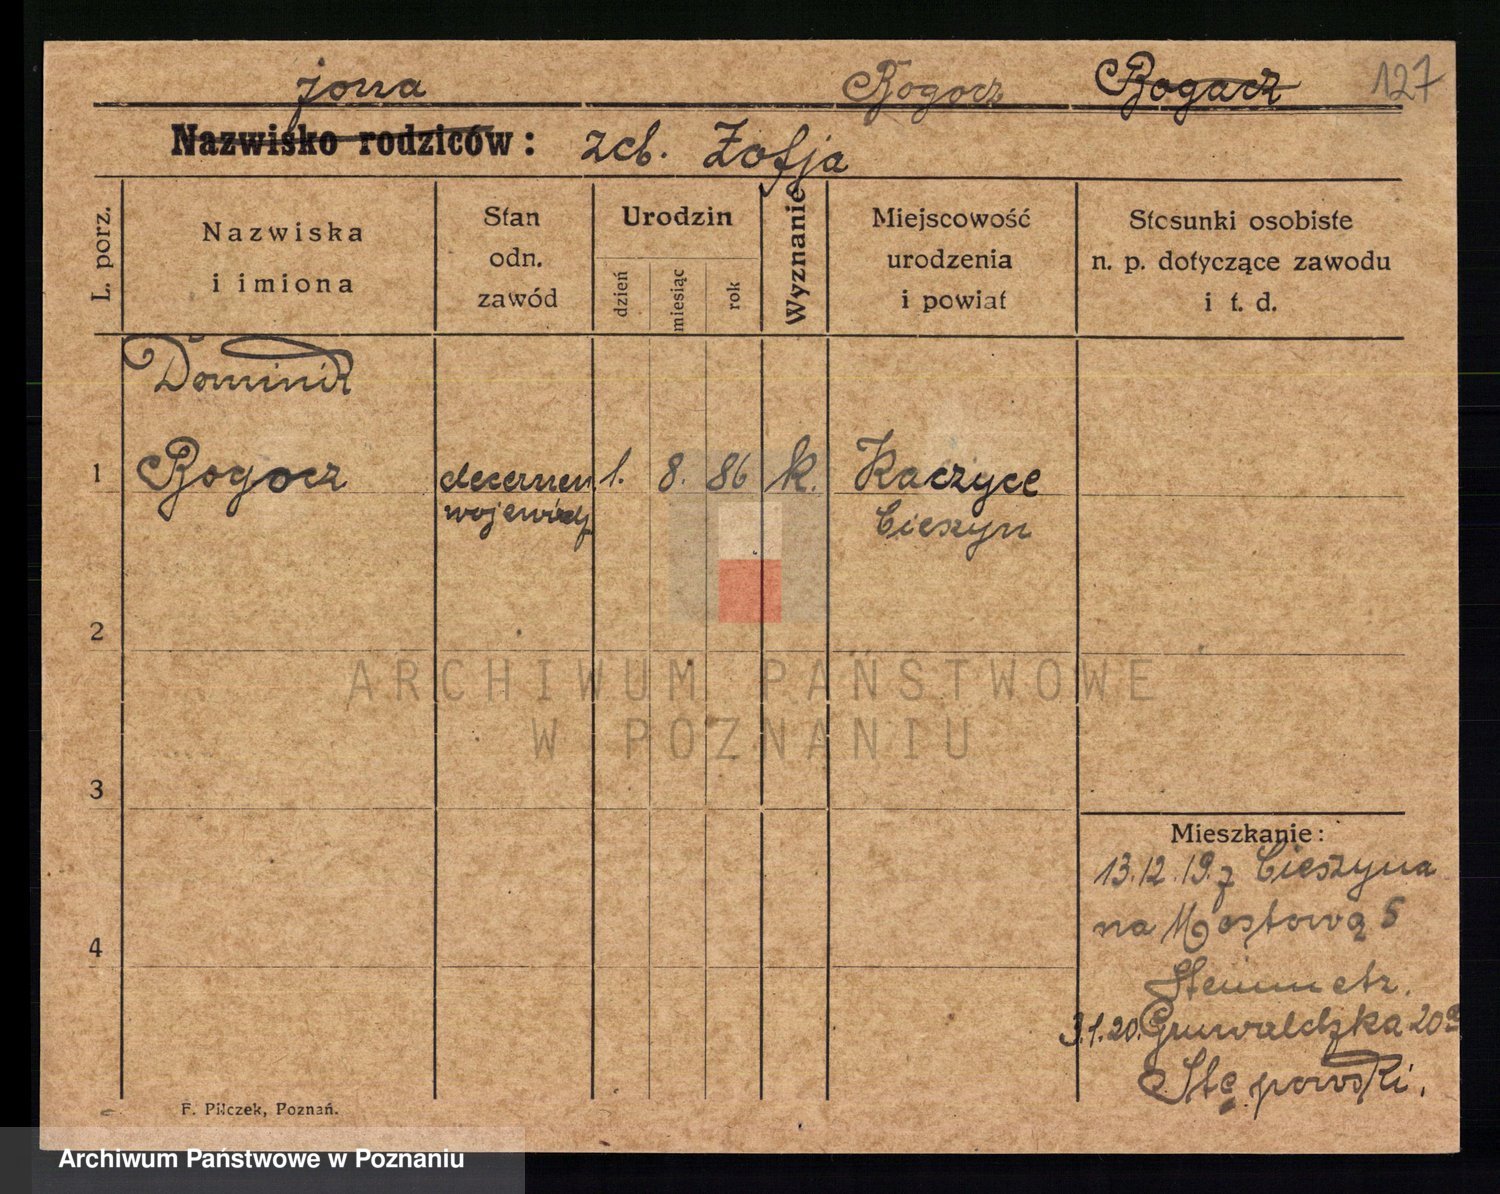 żona Bogocz Bogacz 127
Nazwisko rodziców: zch. Zofja
L. porz.
Nazwiska i imiona
Stan odn. zawód
Urodzin
dzień
miesiąc
rok
Wyznanie
Miejscowość urodzenia i powiat
Stosunki osobiste n. p. dotyczące zawodu i t. d.
Dominik
1 Bogocz decernen. 1. 8. 86 k. Kaczyce
wojewódz Cieszyn
2
3
4
Mieszkanie:
13.12.19. z Cieszyna
na Mostową 5
Steinmetz.
3.1.20. Grunwaldzka 20a
Stępowski.
F. Pilczek, Poznań.
ARCHIWUM PAŃSTWOWE
W POZNANIU
Archiwum Państwowe w Poznaniu